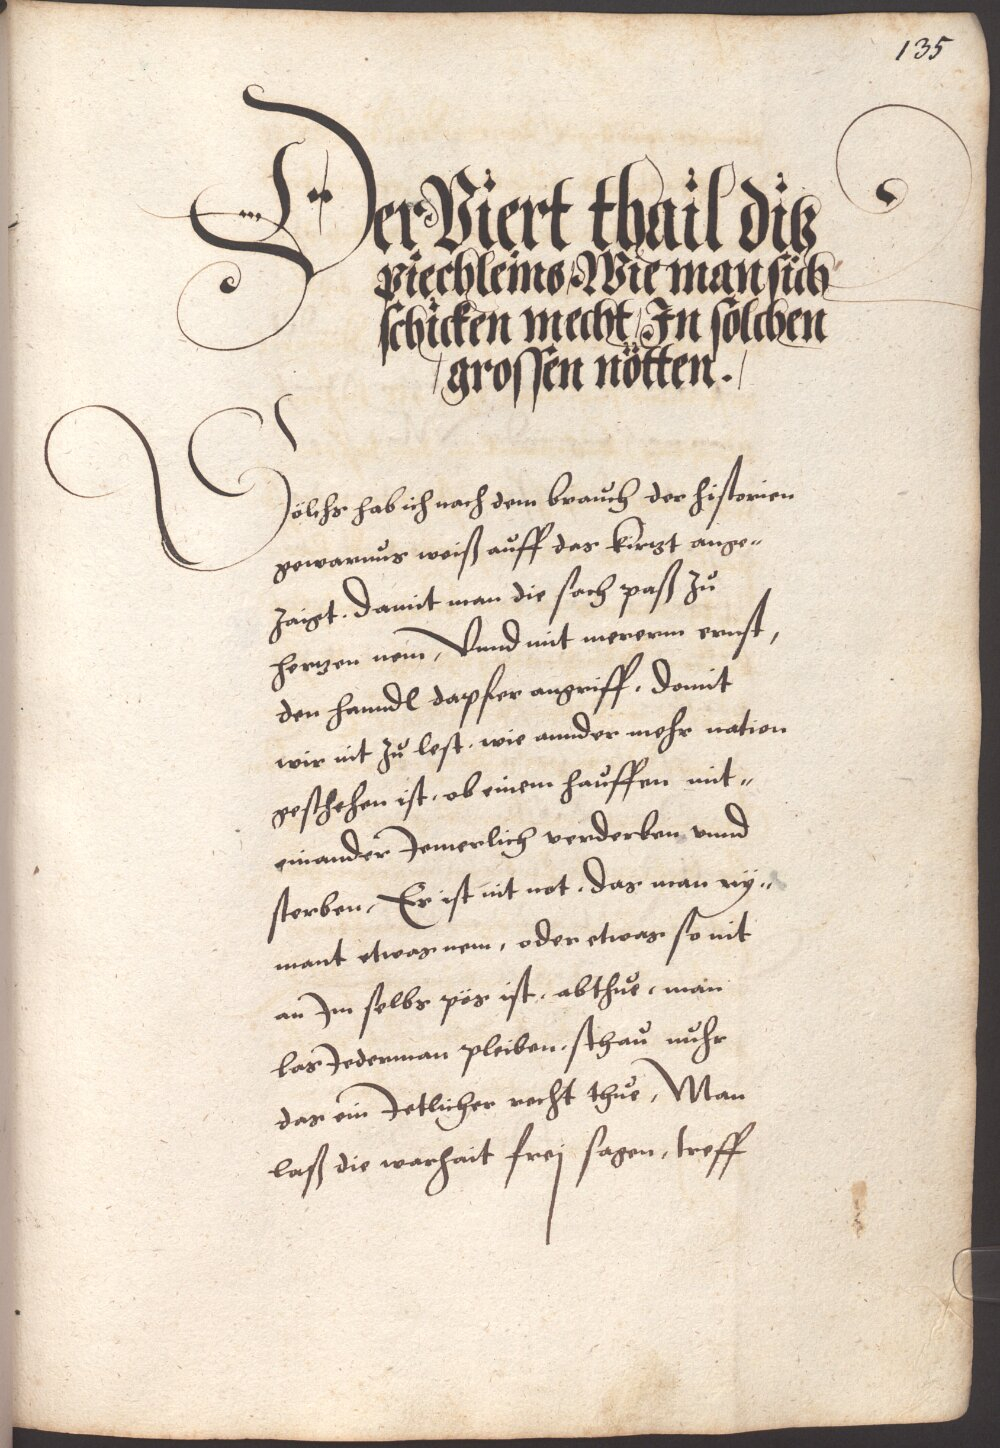 135
Der Viert thail ditz
piechleins / Wie man sich
schicken mecht / In sölchen
/ grossen nötten . /
Sölchs hab ich nach dem brauch der historien
gewarnus weiß auff das kürtzt ange=
zaigt . damit man die sach paß zu
hertzen nem, Vnnd mit mererm ernst ,
den hanndl dapfer angriff . Domit
wir nit zu lest . wie annder mehr nation
geschehen ist . ob einem hauffen mit=
einander Jemerlich verderben vnnd
sterben , Er ist nit not . das man ny=
mant etwas nem , oder etwas so nit
an Im selbs pös ist . abthue . man
las Jederman pleiben . schau nuhr
das ein Jetlicher recht thue , Man
laß die warhait frej sagen , treff